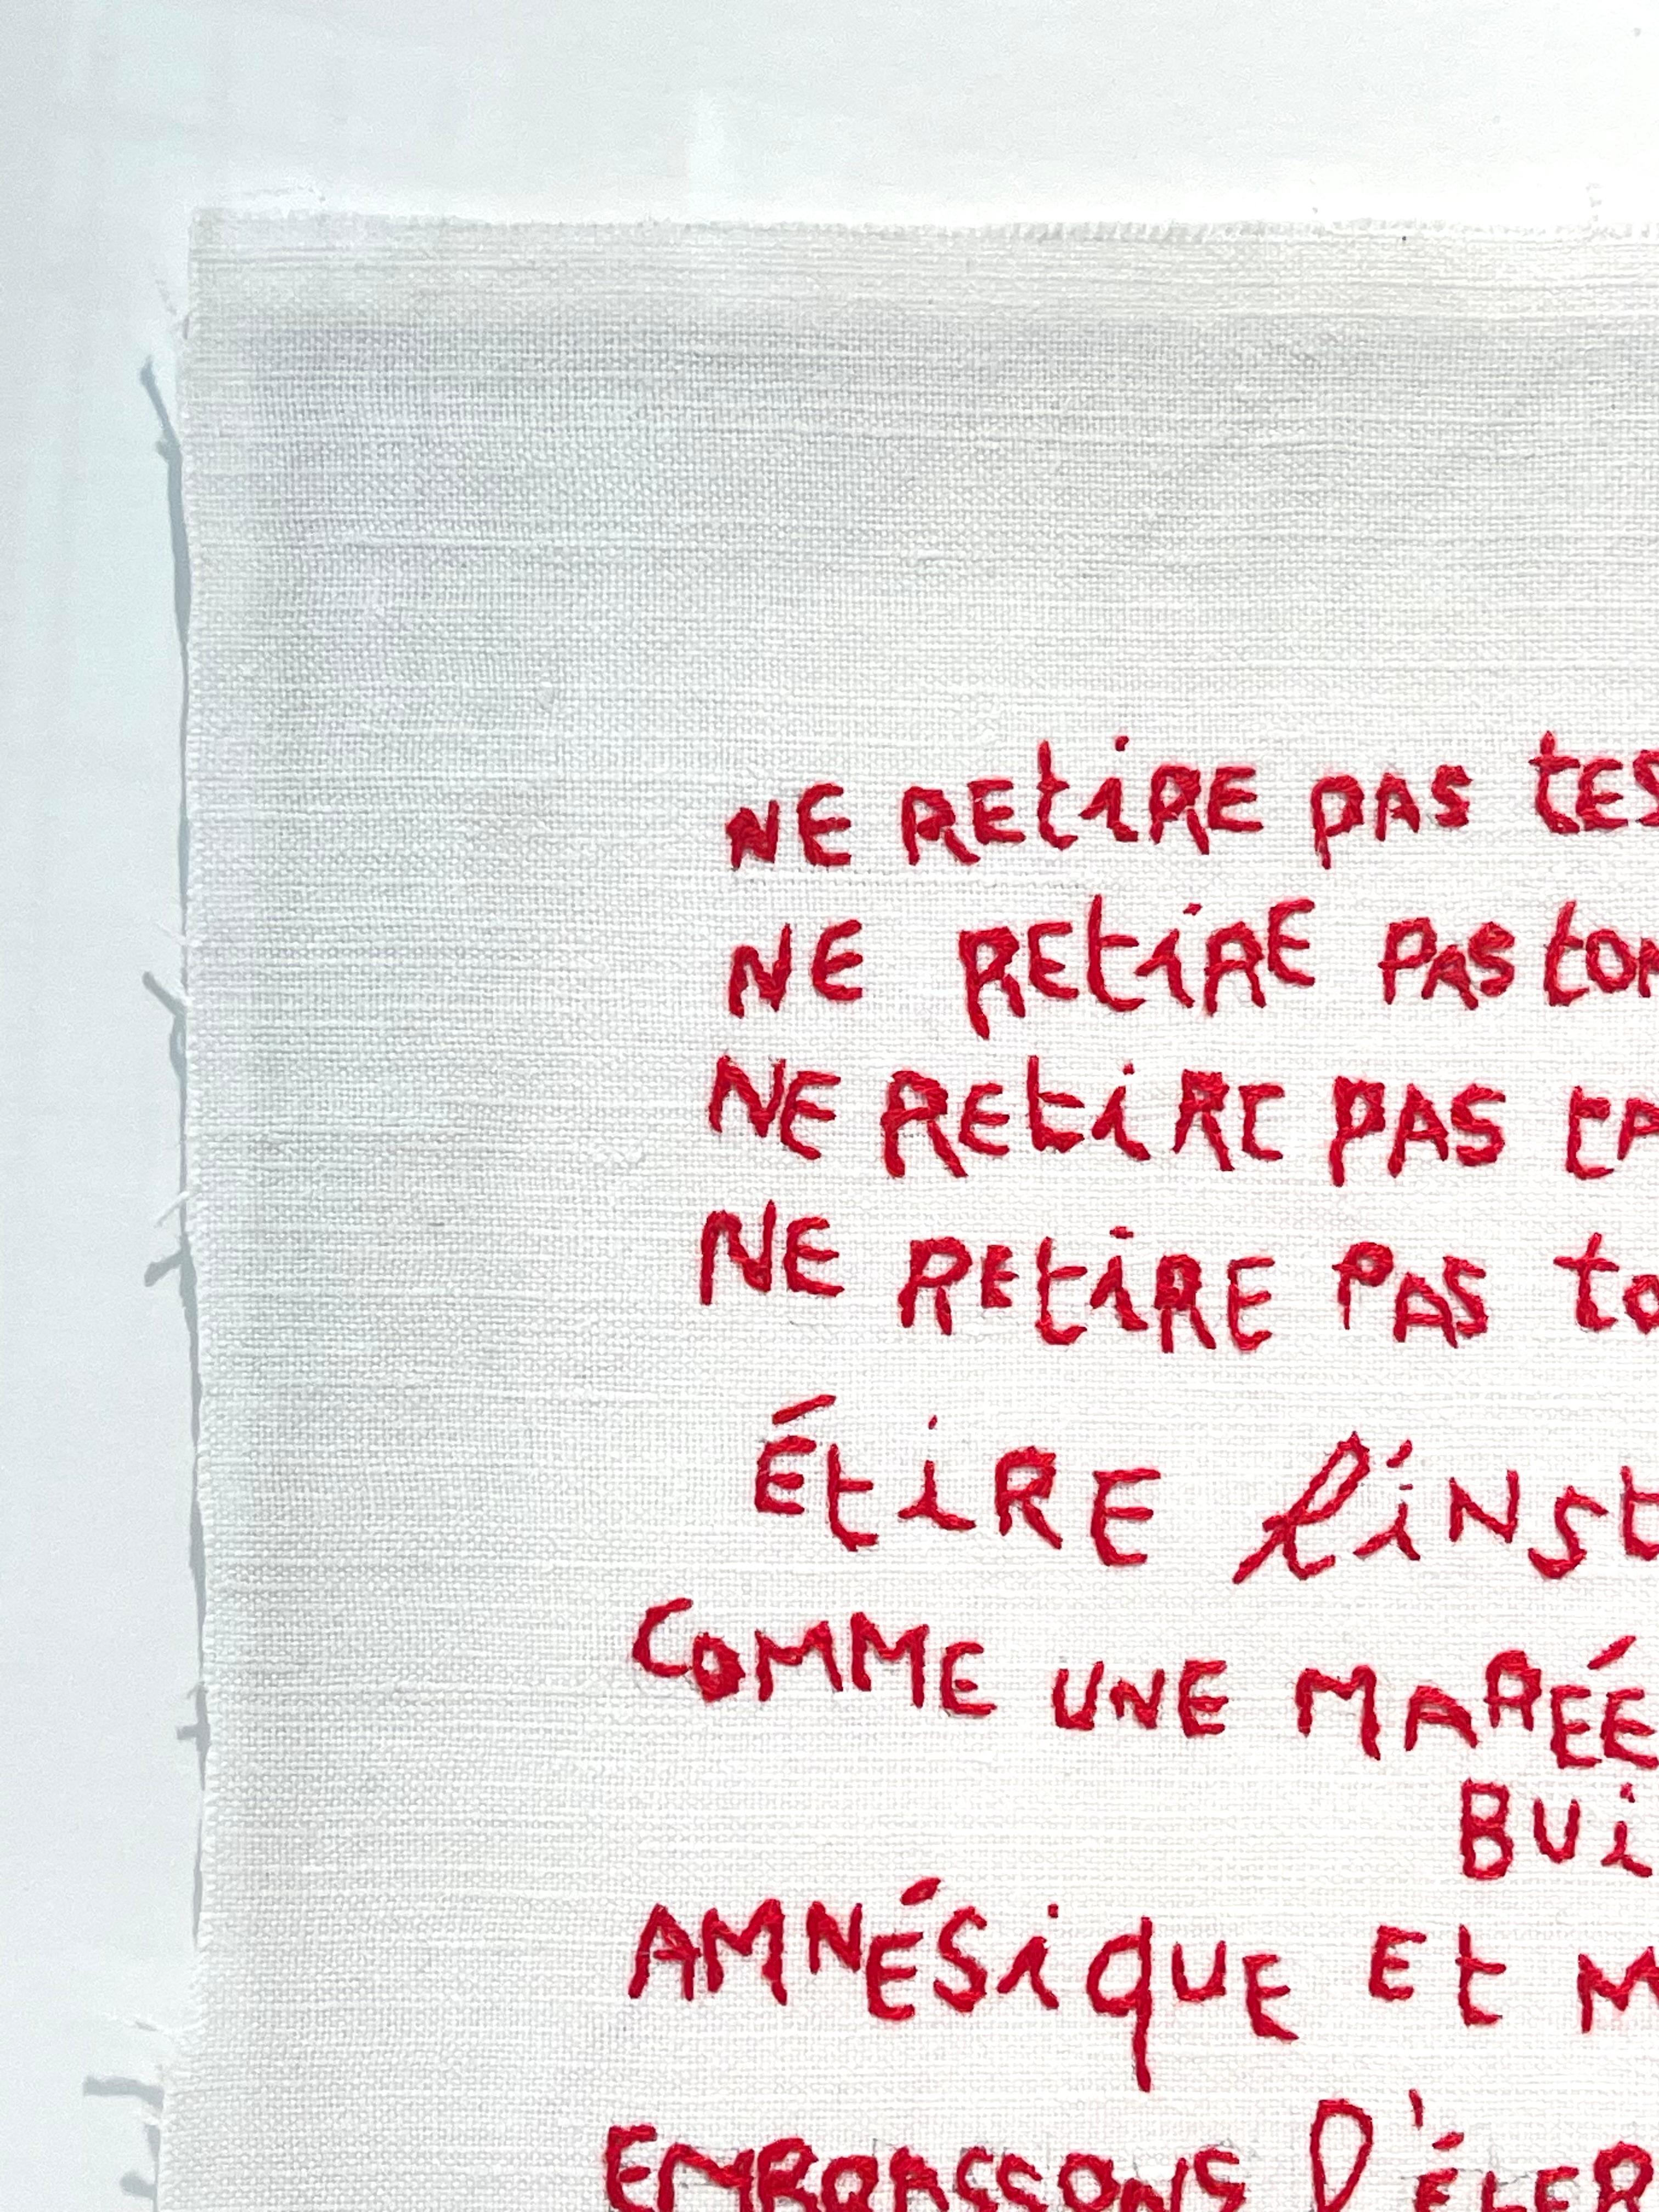 NE REtiRE PAS tES
NE REtiRE PAS tON
NE REtiRE PAS tA
NE REtiRE PAS tO
ÉtiRE l'iNSt
COMME UNE MARÉE
BUi
AMNÉSiqUE Et M
EMBRASSONS l'ÉtER